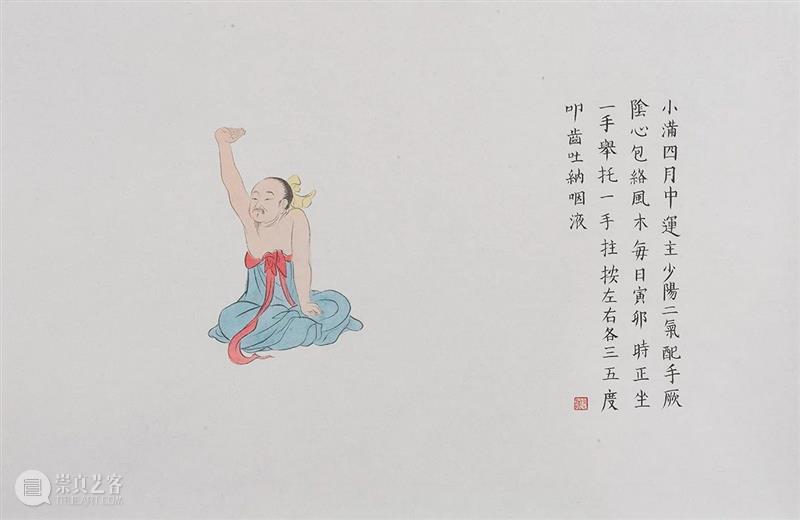 小滿四月中運主少陽二氣配手厥
陰心包絡風木每日寅卯時正坐
一手舉托一手拄按左右各三五度
叩齒吐納咽液
崇真艺客
WWW.TRUEART.COM